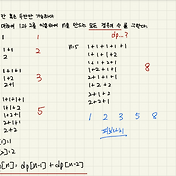 1과 2를 이용하여 n을 만드는 모든 경우의 수를 구한다.
dp...?
1
1
n=5
1+1+1+1+1
1+1
2
2
1+1+1+2
1+1+2+1
1+1+1
1+2
2+1
3
1+2+1+1
2+1+1+1
8
1+2+2
2+1+2
2+2+1
1+1+1+1
1+1+2
1+2+1
2+1+1
2+2
5
1 2 3 5 8
피보나치
dp[n] = dp[n-1] + dp[n-2]